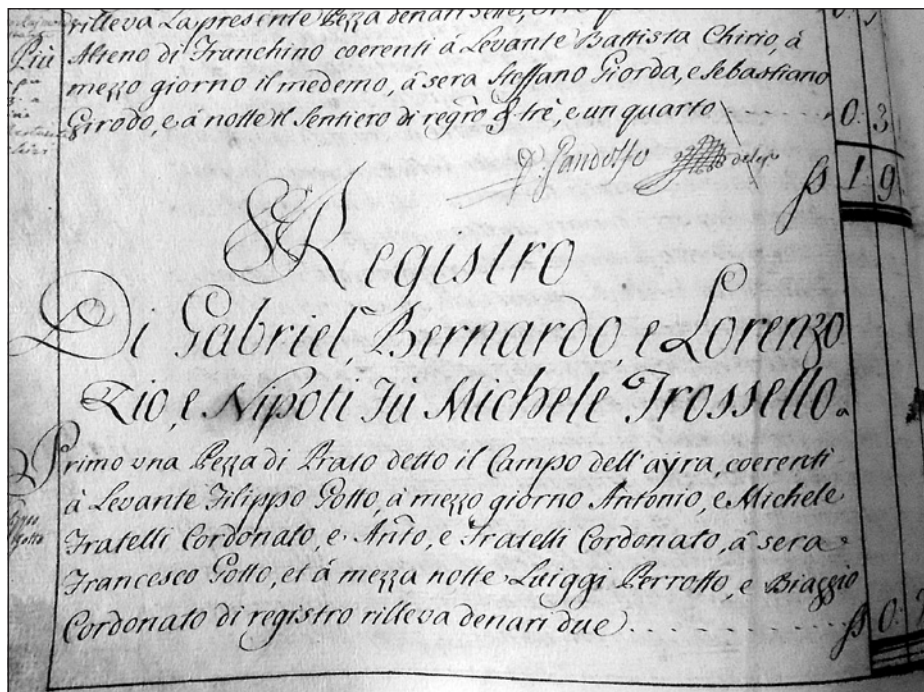 rilleva La presente Pezza denari sette,
Alteno di Franchino coerenti á Levante Battista Chirio, á
mezzo giorno il medemo, á sera Steffano Giorda, e Sebastiano
Girodo, e á notte il Sentiero di regro ß tré, e un quarto 0. 3
P. Gandolfo
ß 1 9
Registro
Di Gabriel, Bernardo, e Lorenzo
Zio, e Nipoti Fú Michele Trossello.
Primo una Pezza di Prato detto il Campo dell'ayra, coerenti
à Levante Filippo Gotto, á mezzo giorno Antonio, e Michele
Fratelli Cordonato, e Anto, e Fratelli Cordonato, á sera
Francesco Gotto, et á mezza notte Luiggi Perrotto, e Biaggio
Cordonato di registro rilleva denari due ß 0.